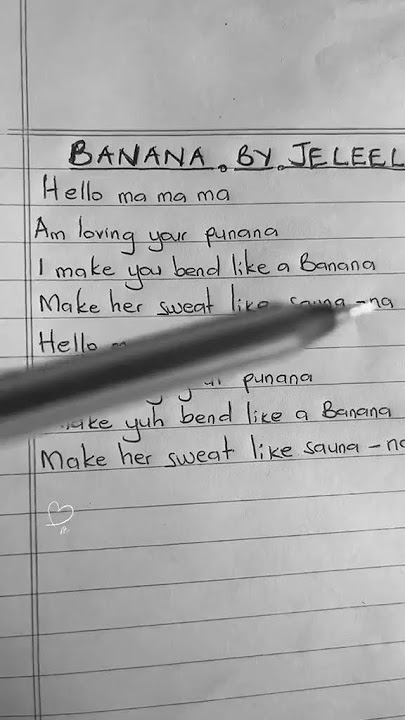 BANANA. BY. JELEEL
Hello ma ma ma
Am loving your punana
I make you bend like a Banana
Make her sweat like sauna -na
Hello
punana
make yuh bend like a Banana
Make her sweat like sauna - na